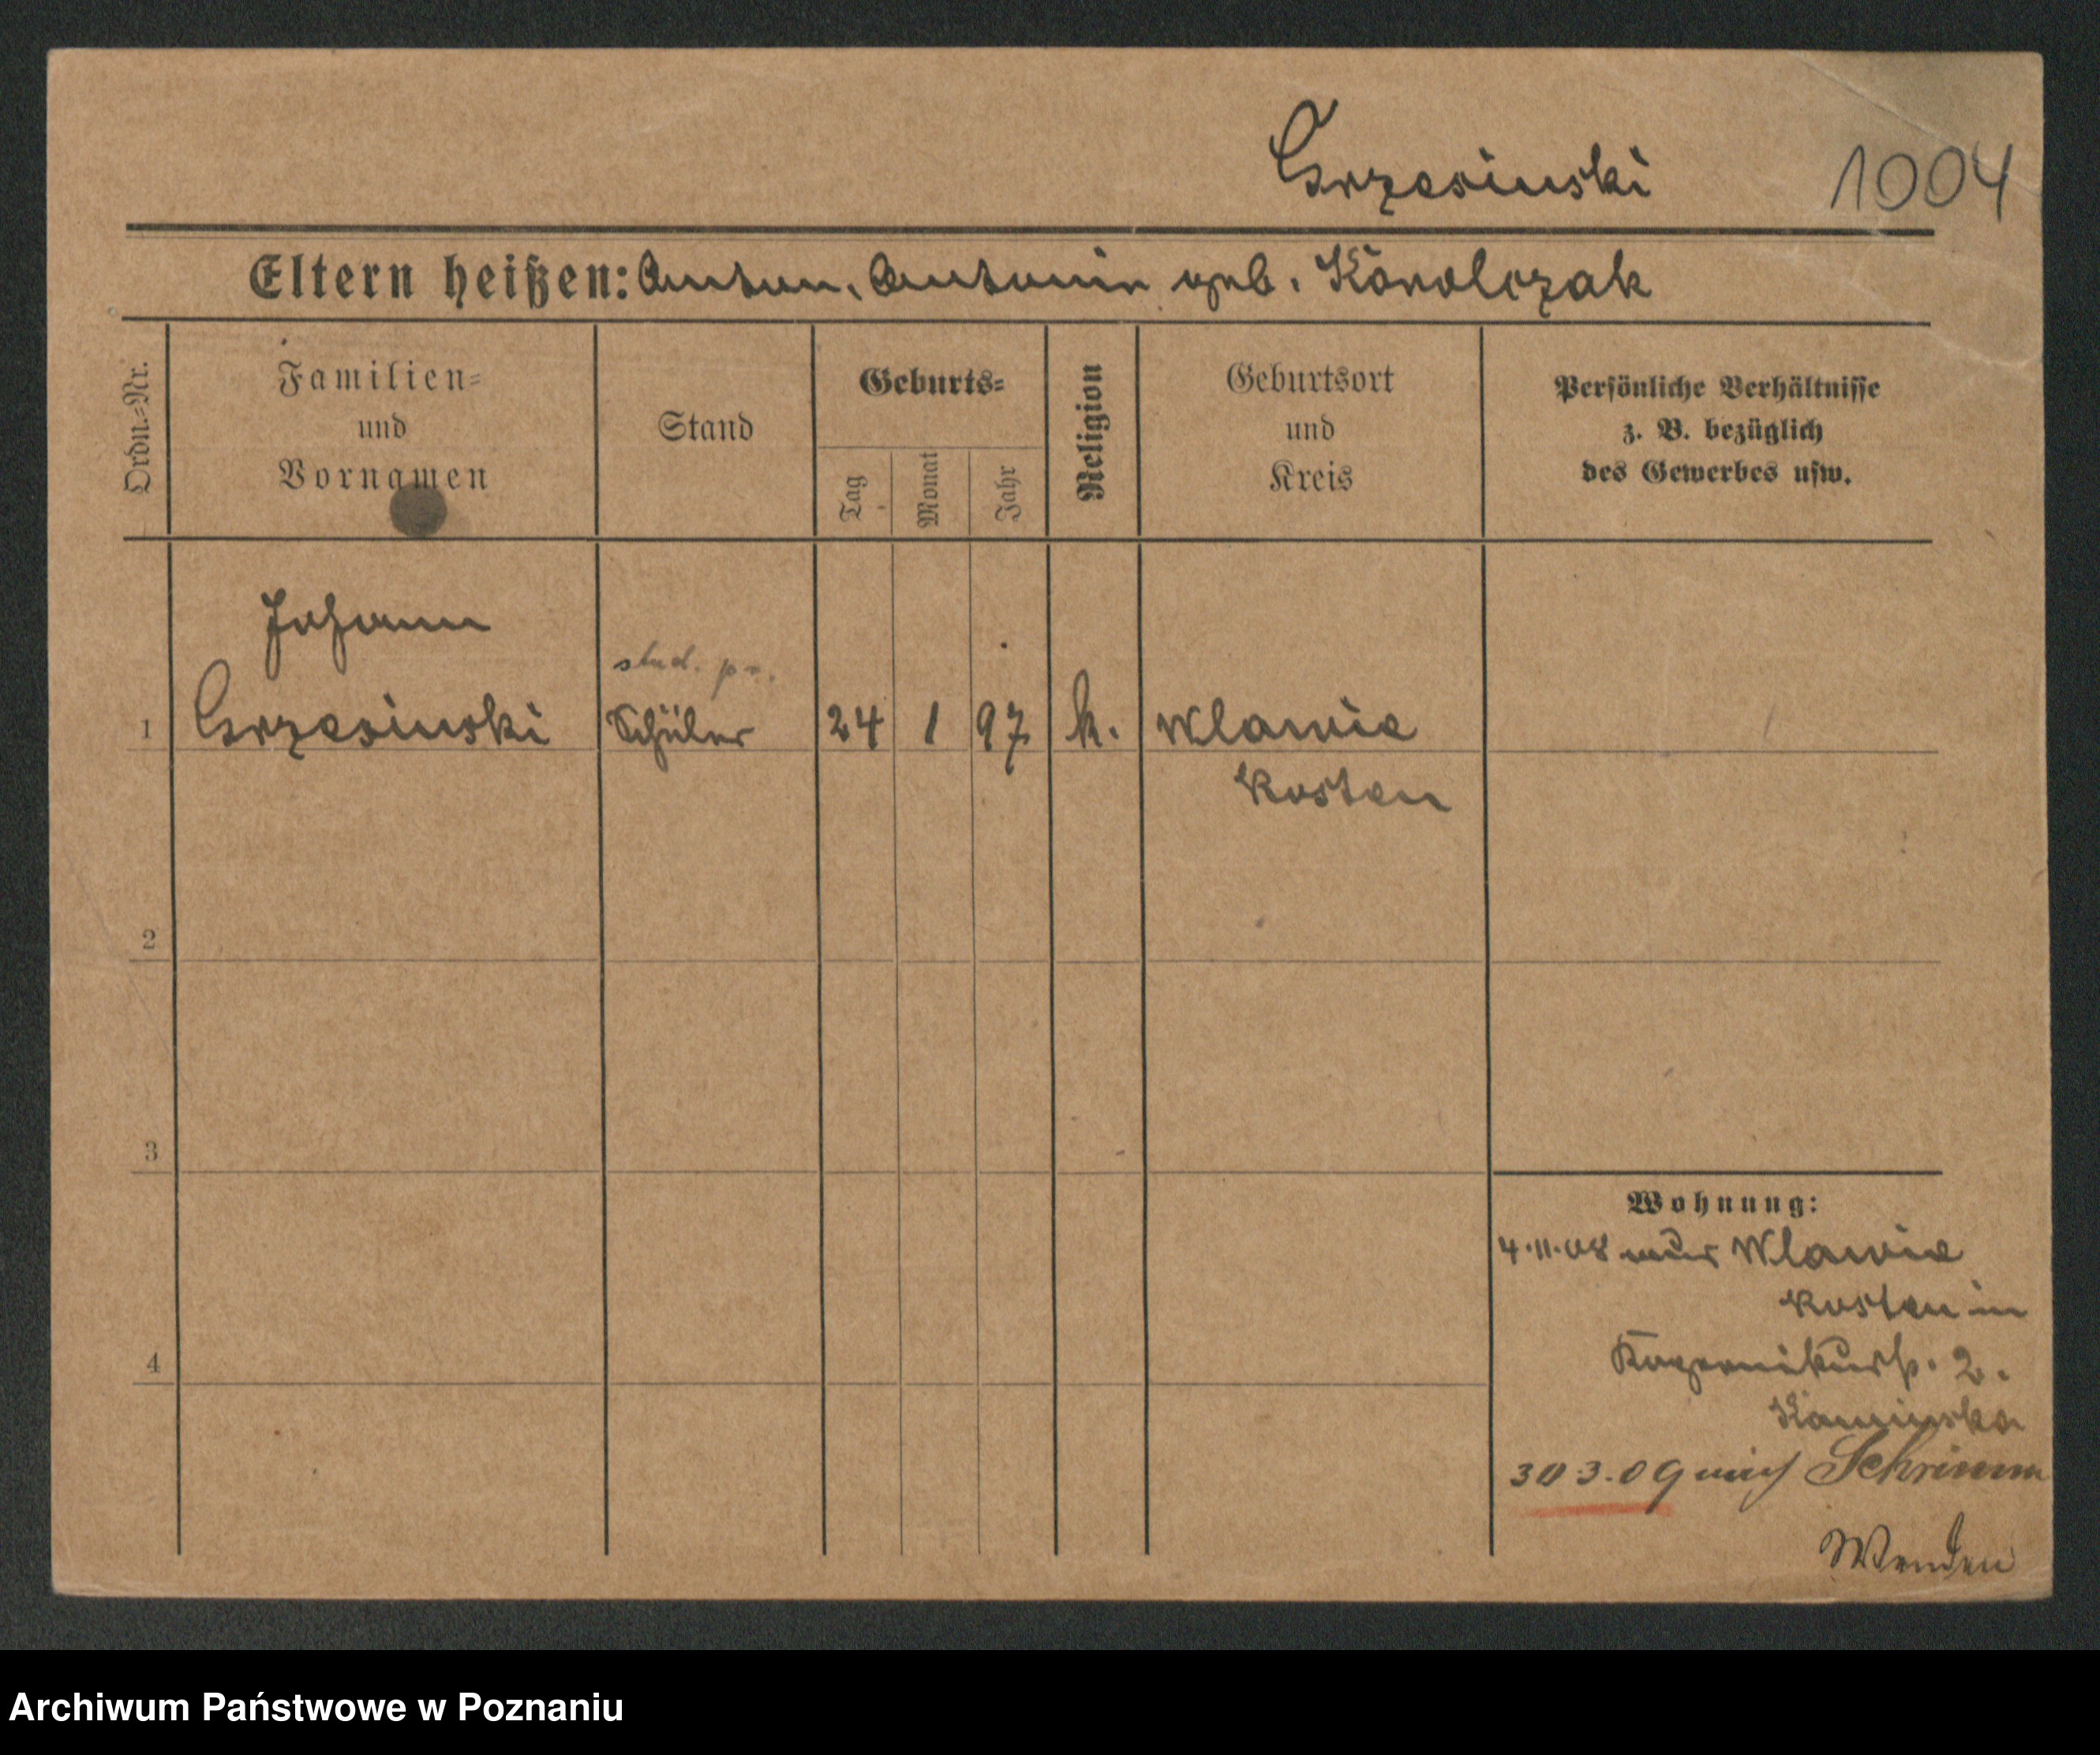 Grzesinski 1004
Eltern heißen: Anton, Antonin geb. Karolczak
Ordn.=Nr.
Familien=
und
Vornamen
Stand
Geburts=
Tag
Monat
Jahr
Religion
Geburtsort
und
Kreis
Persönliche Verhältnisse
z. B. bezüglich
des Gewerbes usw.
Johann
stud.
1 Grzesinski Schüler 24 1 97 k. Wlawie
Kosten
2
3
4
Wohnung:
4.11.08 Wlawie
Kosten in
2.
Kaminska
30 3.09 nach Schrimm
Wenden
Archiwum Państwowe w Poznaniu